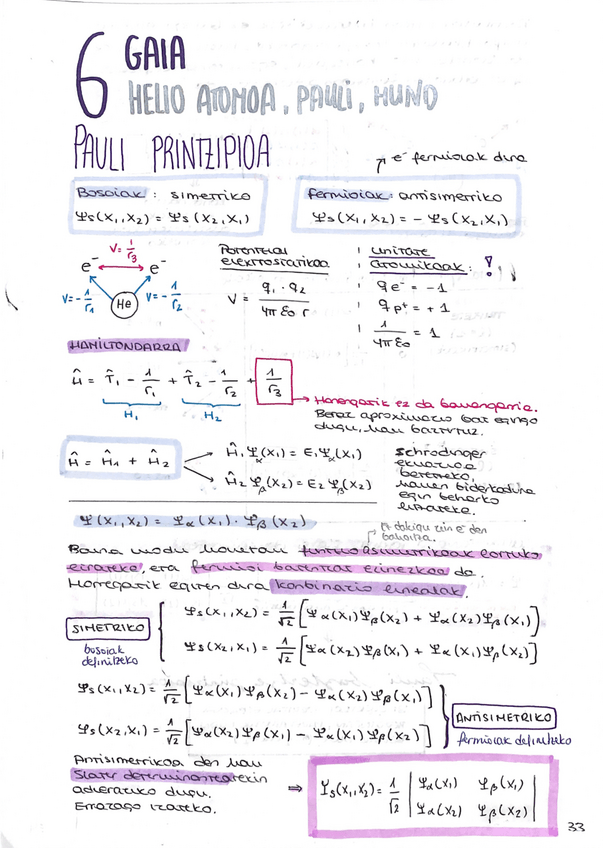 6 GAIA
HELIO ATOMOA, PAULI, HUND
PAULI PRINTZIPIOA
↗ e⁻ fermioiak dira
Bosoiak : simetriko
Ψs(x₁,x₂) = Ψs(x₂,x₁)
Fermioiak : antisimetriko
Ψs(x₁,x₂) = - Ψs(x₂,x₁)
V = 1/r₃
e⁻ e⁻
V = -1/r₁ He V = -1/r₂
POTENTZIAL
ELEKTROSTATIKOA
V = q₁ · q₂ / 4πε₀ r
UNITATE
ATOMIKOAK : !
q e⁻ = -1
q p⁺ = +1
1/4πε₀ = 1
HAMILTONDARRA
Ĥ = T̂₁ - 1/r₁ + T̂₂ - 1/r₂ + 1/r₃
H₁ H₂
→ Horregatik ez da banangarria.
Beraz aproximazio bat egingo
dugu, hau baztertuz.
Ĥ = Ĥ₁ + Ĥ₂
Ĥ₁ Ψα(x₁) = E₁ Ψα(x₁)
Ĥ₂ Ψβ(x₂) = E₂ Ψβ(x₂)
Schrodinger
ekuazioa
betetzeko,
hauen biderkadura
egin beharko
litzateke.
Ψ(x₁,x₂) = Ψα(x₁) · Ψβ(x₂)
Ez dakigu zein e⁻ den
bakoitza.
Baina modu honetan funtzio asimetrikoak lortuko
lirateke, eta fermioi batentzat ezinezkoa da.
Horregatik egiten dira konbinazio linealak.
SIMETRIKO
bosoiak
definitzeko
Ψs(x₁,x₂) = 1/√2 [Ψα(x₁)Ψβ(x₂) + Ψα(x₂)Ψβ(x₁)]
Ψs(x₂,x₁) = 1/√2 [Ψα(x₂)Ψβ(x₁) + Ψα(x₁)Ψβ(x₂)]
Ψs(x₁,x₂) = 1/√2 [Ψα(x₁)Ψβ(x₂) - Ψα(x₂)Ψβ(x₁)]
Ψs(x₂,x₁) = 1/√2 [Ψα(x₂)Ψβ(x₁) - Ψα(x₁)Ψβ(x₂)]
ANTISIMETRIKO
fermioiak definitzeko
Antisimetrikoa den hau
Slater determinantearekin
adieratuko dugu.
Errazago izateko.
⇒ Ψs(x₁,x₂) = 1/√2 | Ψα(x₁) Ψβ(x₁) |
| Ψα(x₂) Ψβ(x₂) |
33